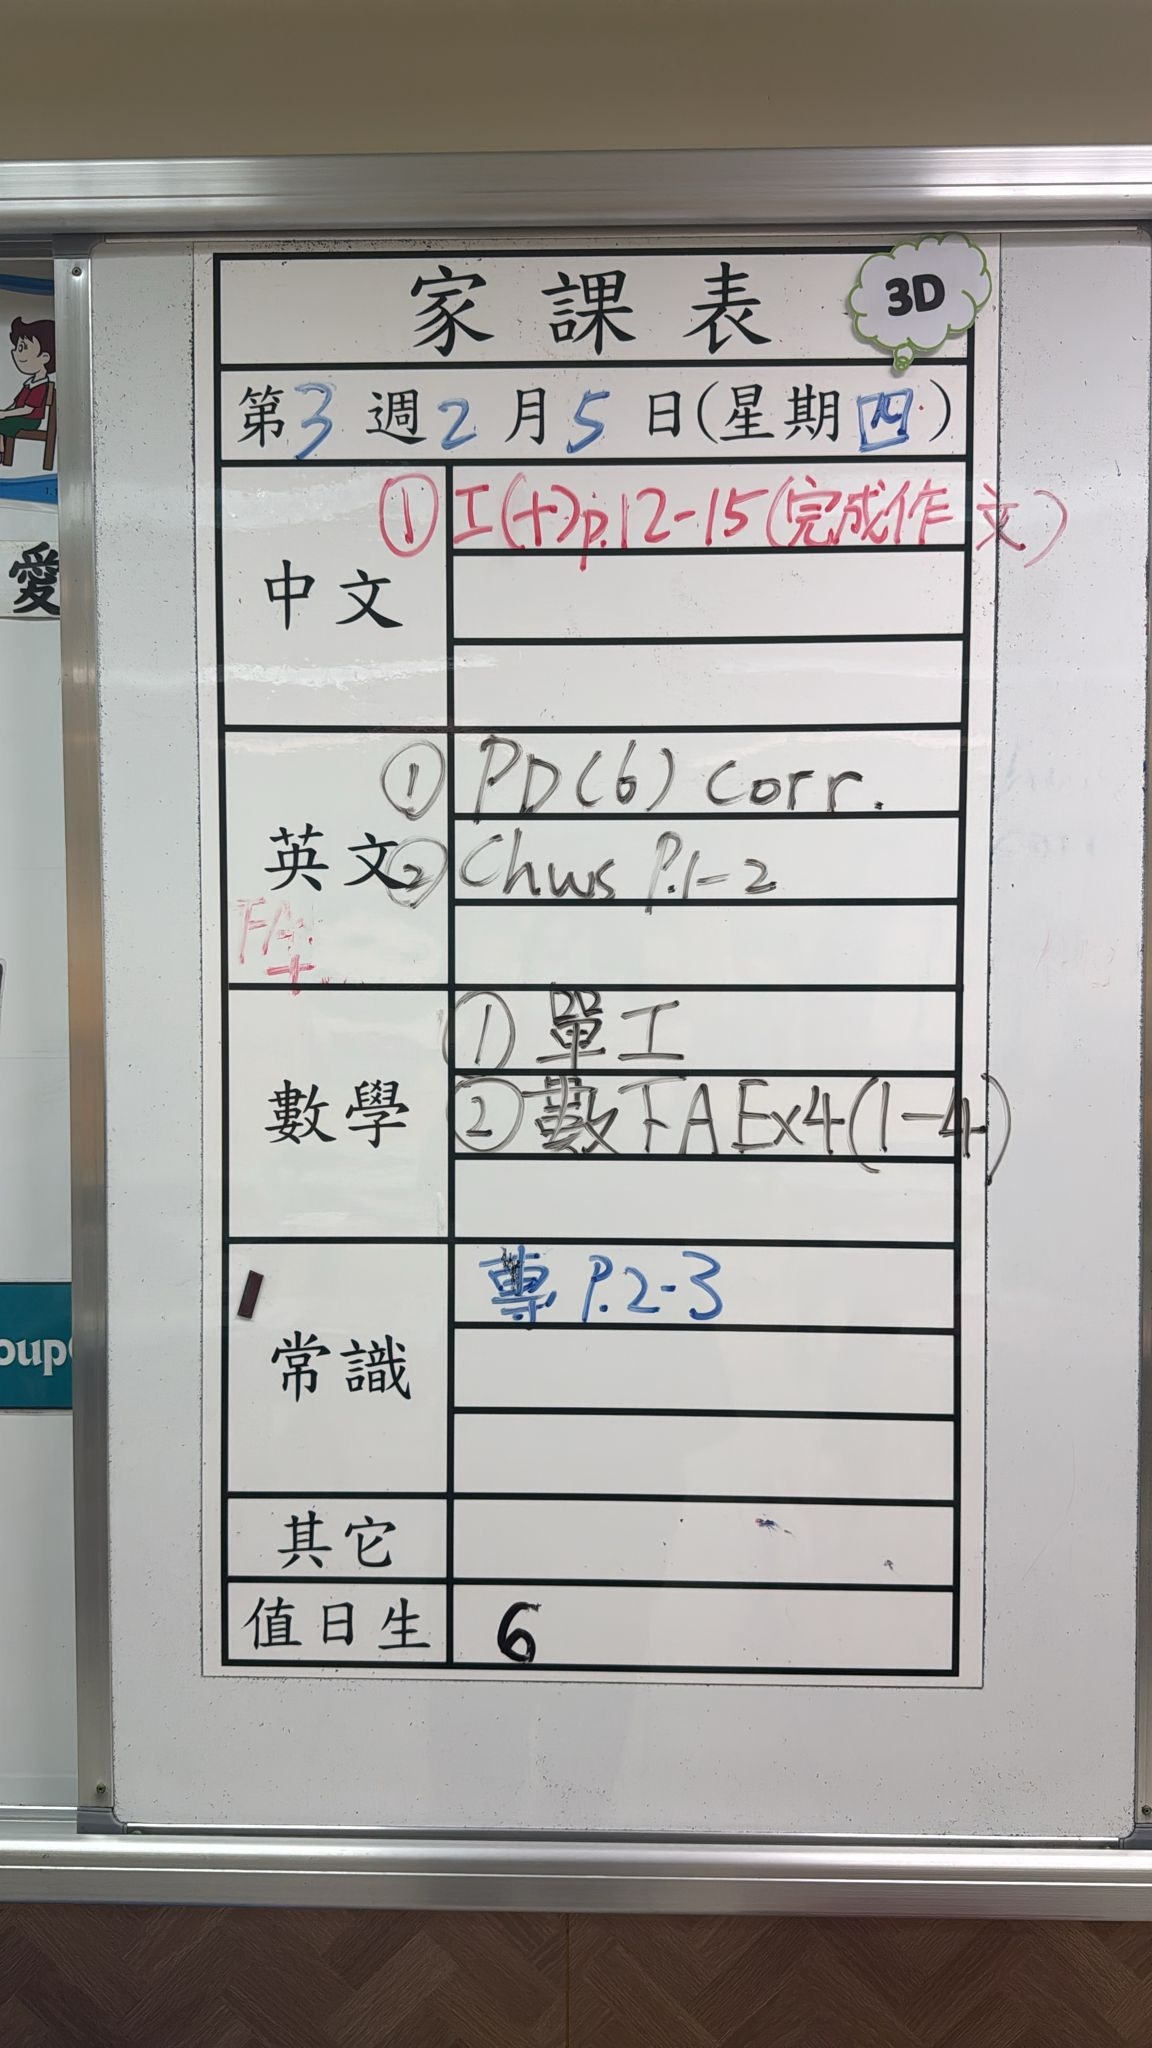 家課表
3D
第3週2月5日(星期四)
中文
①工(十)p.12-15(完成作文)
英文
①PD(6) Corr.
②Chws P.1-2
數學
①單工
②數下A Ex4(1-4)
常識
專 P.2-3
其它
值日生
6
愛
oup